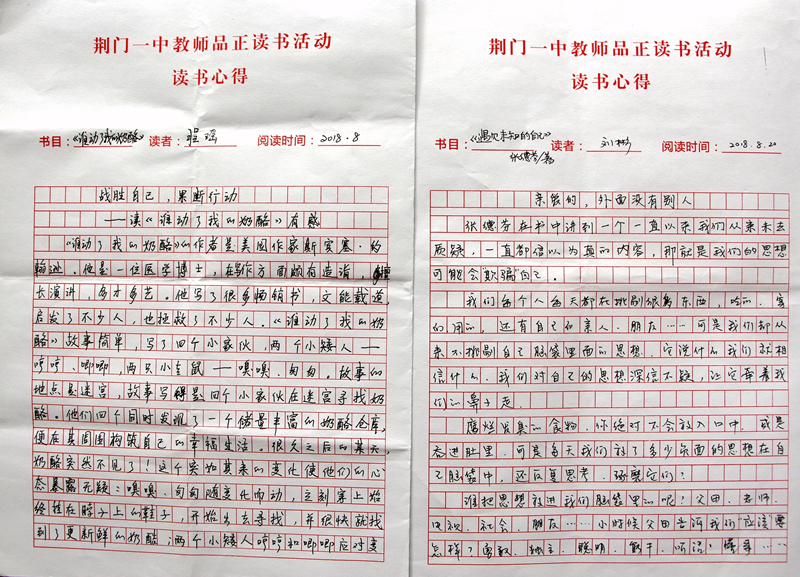 荆门一中教师品正读书活动
读书心得
书目：《谁动了我的奶酪》 读者：程瑶 阅读时间：2018.8
战胜自己，果断行动
——读《谁动了我的奶酪》有感
《谁动了我的奶酪》的作者是美国作家斯宾塞·约
翰逊。他是一位医学博士，在写作方面颇有造诣，擅
长演讲，多才多艺。他写了很多畅销书，文能载道，
启发了不少人，也拯救了不少人。《谁动了我的奶
酪》故事简单，写了四个小家伙，两个小矮人——
哼哼、唧唧，两只小老鼠——嗅嗅、匆匆。故事的
地点是迷宫，故事写得是四个小家伙在迷宫寻找奶
酪。他们四个同时发现了一个储量丰富的奶酪仓库，
便在其周围构筑自己的幸福生活。很久之后的某天，
奶酪突然不见了！这个突如其来的变化使他们的心
态暴露无疑：嗅嗅、匆匆随变化而动，立刻穿上始
终挂在脖子上的鞋子，开始出去寻找，并很快就找
到了更新鲜的奶酪；两个小矮人哼哼和唧唧应对变
荆门一中教师品正读书活动
读书心得
书目：《遇见未知的自己》 读者：刘彬 阅读时间：2018.8.20
张德芬/著
亲爱的，外面没有别人
张德芬在书中讲到一个一直以来我们从来未去
质疑，一直都信以为真的内容，那就是我们的思想
可能会欺骗自己。
我们每个人每天都在挑剔很多东西，吃的、穿
的、用的，还有自己的亲人、朋友……可是我们却从
来不挑剔自己脑袋里面的思想，它说什么我们就相
信什么。我们对自己的思想深信不疑，让它牵着我
们的鼻子走。
腐烂发臭的食物，你绝对不会放入口中，或是
吞进肚里，可是每天我们放了多少负面的思想在自
己脑袋中，还反复思考、琢磨它们？
谁把思想放进我们脑袋里的呢？父母、老师、
电视、社会、朋友……小时候父母告诉我们应该要
怎样？勇敢、独立、聪明、能干、听话，懂事……